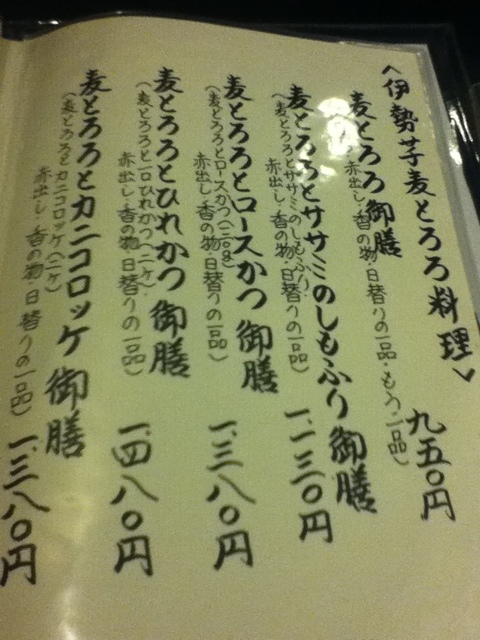 〈伊勢芋麦とろろ料理〉
麦とろろ御膳 九五〇円
赤出し・香の物・日替りの一品・もう一品）
麦とろろとササミのしもふり御膳 一、一三〇円
（麦とろろとササミのしもふり・
赤出し・香の物・日替りの一品）
麦とろろとロースかつ御膳 一、三八〇円
（麦とろろとロースかつ
赤出し・香の物・日替りの一品）
麦とろろとひれかつ御膳 一、四八〇円
（麦とろろと一口ひれかつ（二ヶ）・
赤出し・香の物・日替りの一品）
麦とろろとカニコロッケ御膳 一、三八〇円
（麦とろろとカニコロッケ（二ヶ）
赤出し・香の物・日替りの一品）